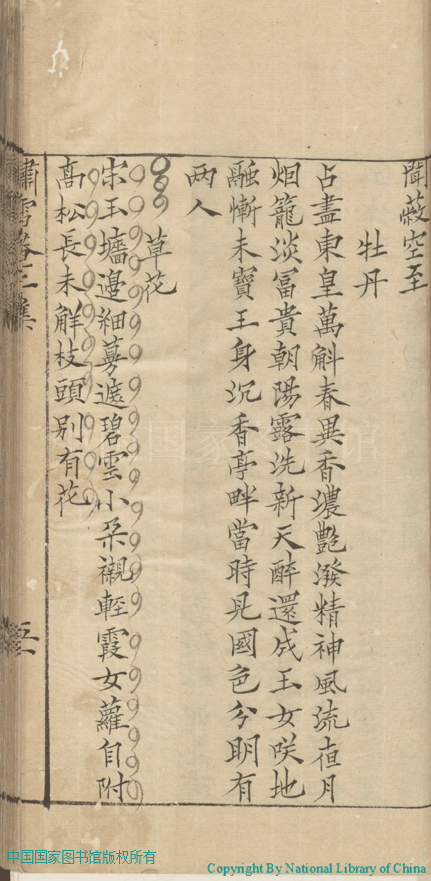 聞薇空至
牡丹
占盡東皇萬斛春異香濃艶潑精神風流夜月
烟籠淡冨貴朝陽露洗新天醉還成王女咲地
融慚未寳王身沉香亭畔當時見國色分明有
两人
草花
宋玉墻邉細蔓遮碧雲小朶襯輕霞女蘿自附
髙松長未觧枝頭別有花
嘯雪
五
中国国家图书馆版权所有
Copyright By National Library of China